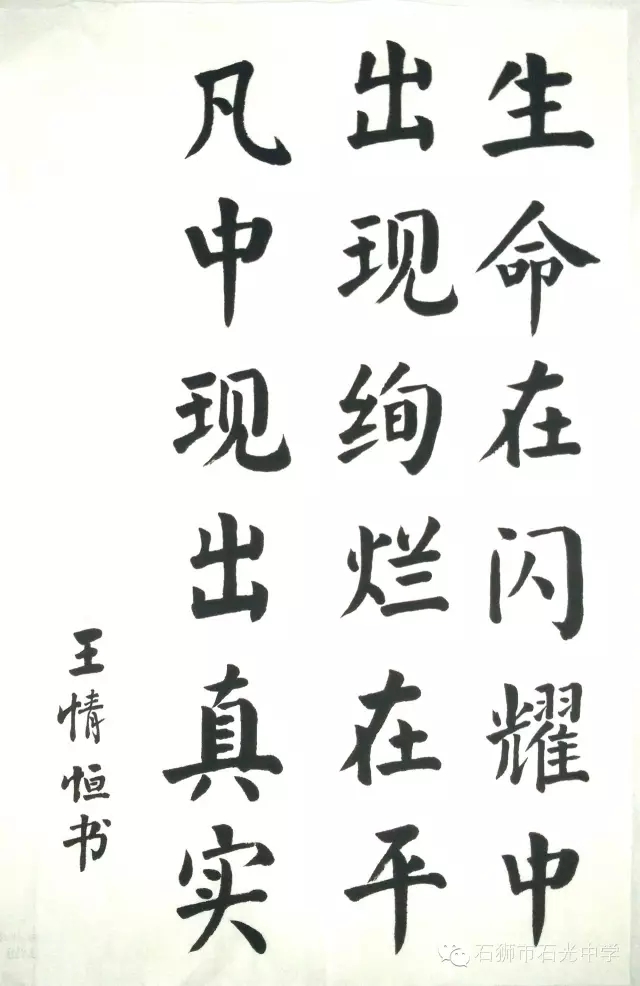 生命在闪耀中
出现绚烂在平
凡中现出真实
王情恒书
石狮市石光中学